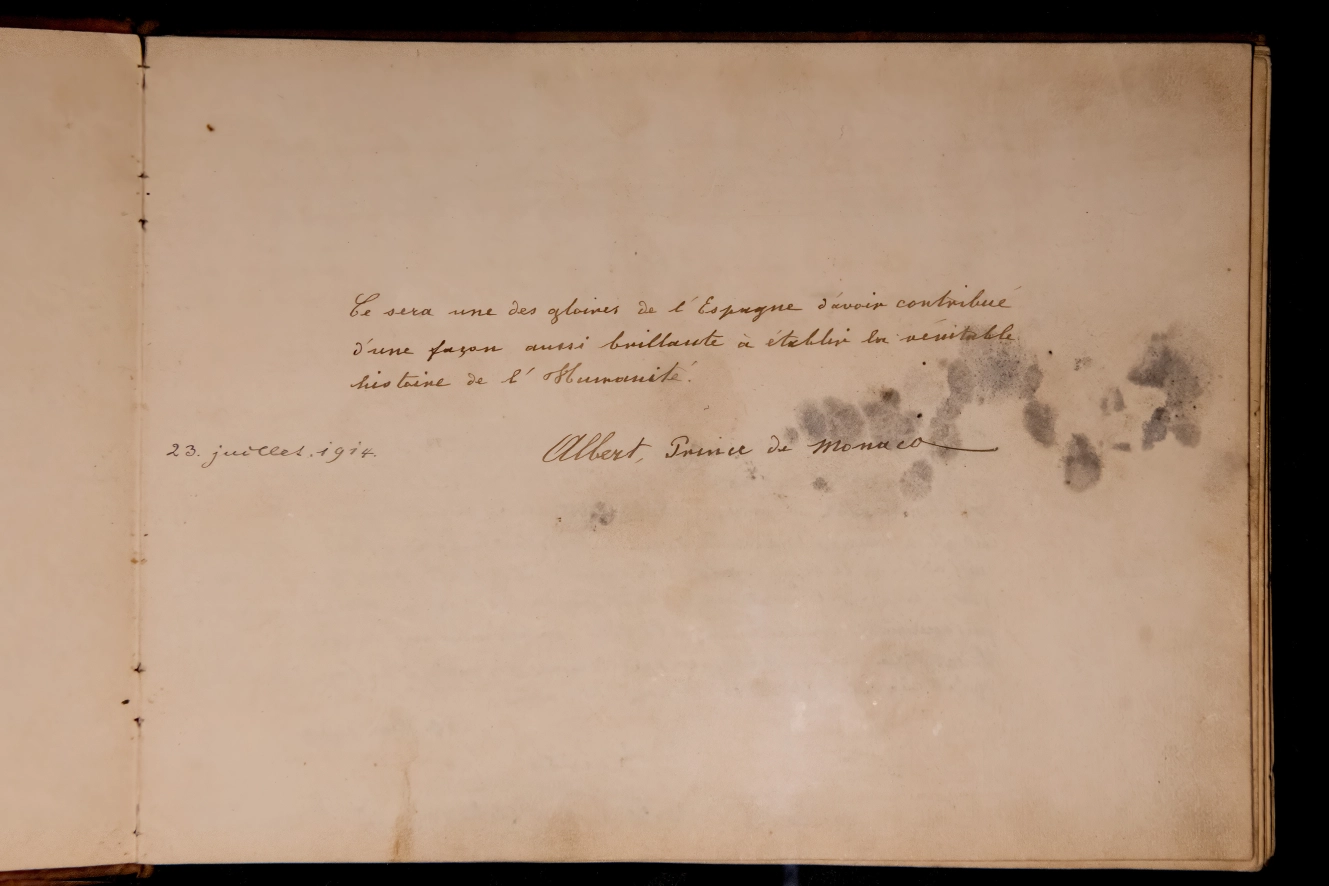 Ce sera une des gloires de l'Espagne d'avoir contribué
d'une façon aussi brillante à établir la véritable
histoire de l'Humanité.
23. juillet. 1914. Albert, Prince de Monaco